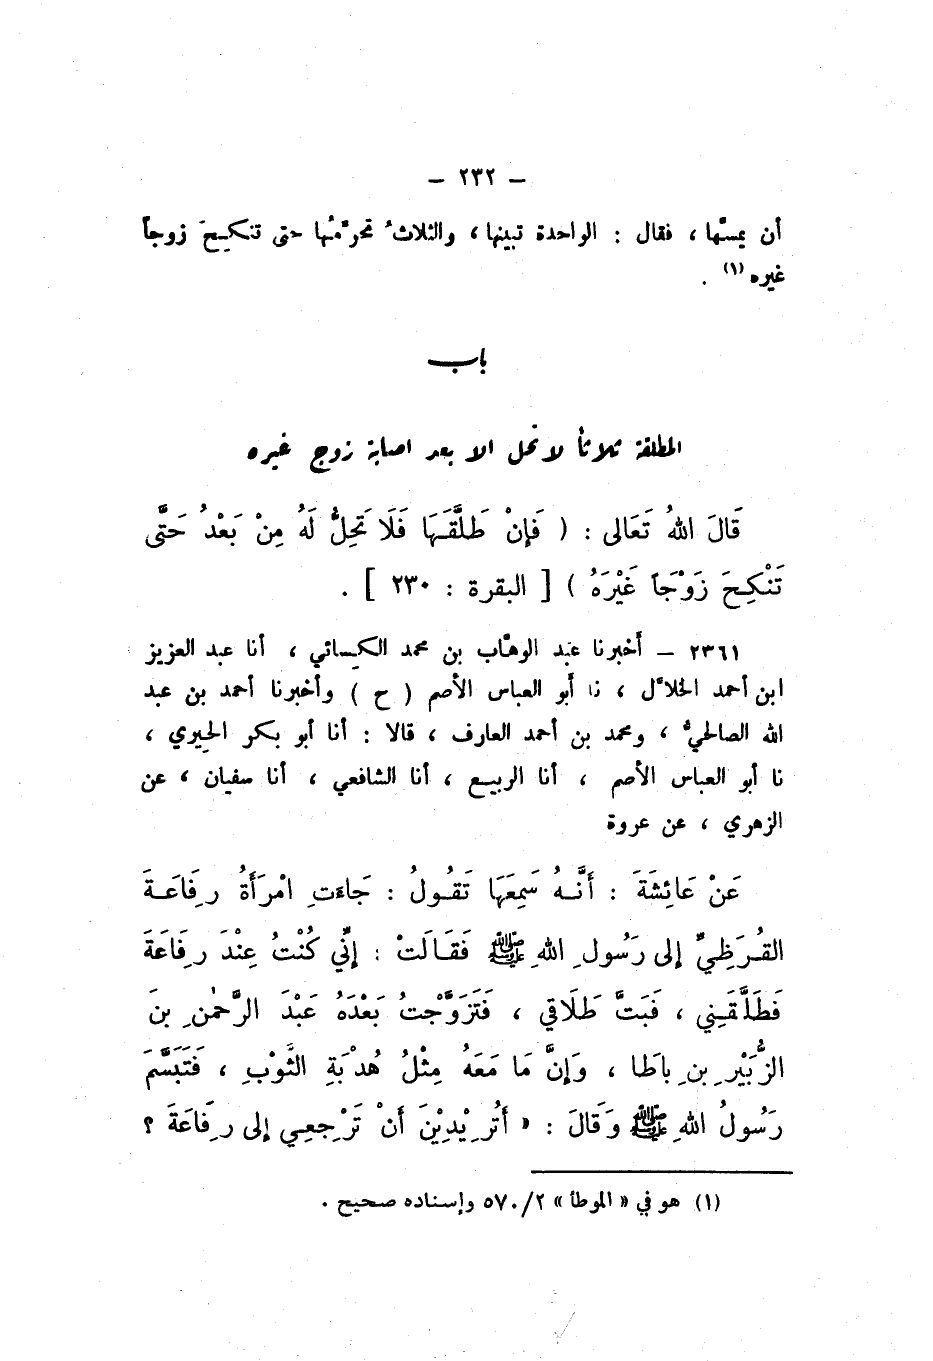 – ٢٣٢ –
أن يمسَّها ، فقال : الواحدة تبينها ، والثلاثُ تحرِّمُها حتى تنكِحَ زوجاً
غيره (١) .
باب
المطلقة ثلاثاً لا تحل الا بعد اصابة زوج غيره
قَالَ اللهُ تَعَالى : ( فَإِنْ طَلَّقَهَا فَلَا تَحِلُّ لَهُ مِنْ بَعْدُ حَتَّى
تَنْكِحَ زَوْجَاً غَيْرَهُ ) [ البقرة : ٢٣٠ ] .
٢٣٦١ – أخبرنا عبد الوهَّاب بن محمد الكِسائي ، أنا عبد العزيز
ابن أحمد الخلاَّل ، نا أبو العباس الأصم ( ح ) وأخبرنا أحمد بن عبد
الله الصالحيُّ ، ومحمد بن أحمد العارف ، قالا : أنا أبو بكر الحيري ،
نا أبو العباس الأصم ، أنا الربيع ، أنا الشافعي ، أنا سفيان ، عن
الزهري ، عن عروة
عَنْ عَائِشَةَ : أَنَّهُ سَمِعَهَا تَقُولُ : جَاءَتِ امْرَأَةُ رِفَاعَةَ
القُرَظِيِّ إلى رَسُولِ اللهِ ﷺ فَقَالَتْ : إنِّي كُنْتُ عِنْدَ رِفَاعَةَ
فَطَلَّقَنِي ، فَبَتَّ طَلَاقي ، فَتَزَوَّجْتُ بَعْدَهُ عَبْدَ الرَّحْمٰنِ بنَ
الزُّبَيْرِ بنِ باَطا ، وَإنَّ مَا مَعَهُ مِثْلُ هُدْبَةِ الثَّوْبِ ، فَتَبَسَّمَ
رَسُولُ اللهِ ﷺ وَقَالَ : « أَتُرِيْدِيْنَ أَنْ تَرْجِعِي إلى رِفَاعَةَ ؟
(١) هو في « الموطأ » ٥٧٠/٢ وإسناده صحيح .